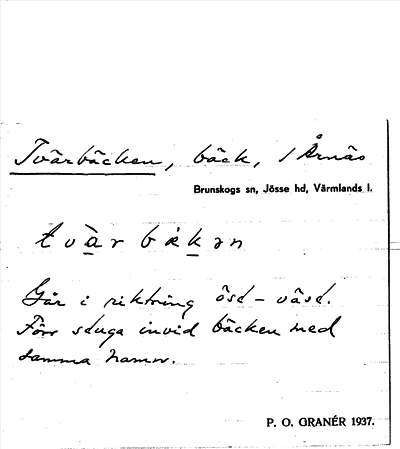 Tvärbäcken, bäck, i Årnäs
Brunskogs sn, Jösse hd, Värmlands l.
Går i riktning öst – väst.
Förr stuga invid bäcken med
samma namn.
P. O. GRANÉR 1937.